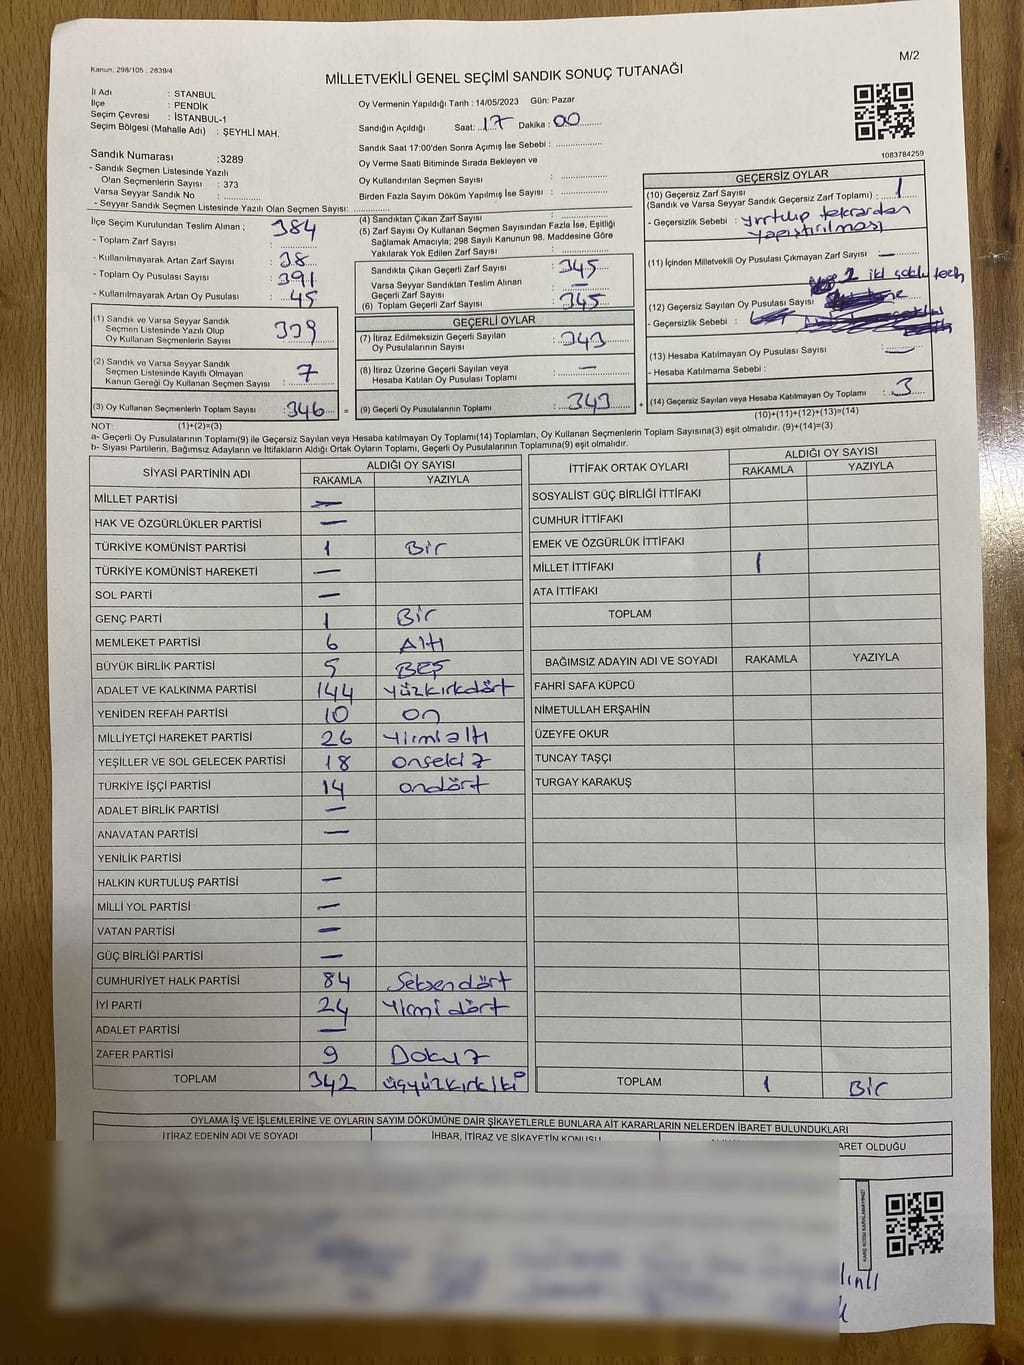 Kanun: 298/105 , 2839/4
M/2
MİLLETVEKİLİ GENEL SEÇİMİ SANDIK SONUÇ TUTANAĞI
İl Adı : STANBUL
İlçe : PENDİK
Seçim Çevresi : İSTANBUL-1
Seçim Bölgesi (Mahalle Adı) : ŞEYHLİ MAH.
Oy Vermenin Yapıldığı Tarih : 14/05/2023 Gün: Pazar
Sandığın Açıldığı Saat: 17 Dakika : 00
Sandık Saat 17:00'den Sonra Açımış İse Sebebi :
Oy Verme Saati Bitiminde Sırada Bekleyen ve
Oy Kullandırılan Seçmen Sayısı :
Birden Fazla Sayım Döküm Yapılmış İse Sayısı :
1083784259
Sandık Numarası :3289
- Sandık Seçmen Listesinde Yazılı
Olan Seçmenlerin Sayısı : 373
Varsa Seyyar Sandık No :
- Seyyar Sandık Seçmen Listesinde Yazılı Olan Seçmen Sayısı:
İlçe Seçim Kurulundan Teslim Alınan ;
- Toplam Zarf Sayısı : 384
- Kullanılmayarak Artan Zarf Sayısı : 38
- Toplam Oy Pusulası Sayısı : 391
- Kullanılmayarak Artan Oy Pusulası : 45
(1) Sandık ve Varsa Seyyar Sandık
Seçmen Listesinde Yazılı Olup
Oy Kullanan Seçmenlerin Sayısı : 339
(2) Sandık ve Varsa Seyyar Sandık
Seçmen Listesinde Kayıtlı Olmayan
Kanun Gereği Oy Kullanan Seçmen Sayısı : 7
(3) Oy Kullanan Seçmenlerin Toplam Sayısı : 346 =
(4) Sandıktan Çıkan Zarf Sayısı :
(5) Zarf Sayısı Oy Kullanan Seçmen Sayısından Fazla İse, Eşitliği
Sağlamak Amacıyla; 298 Sayılı Kanunun 98. Maddesine Göre
Yakılarak Yok Edilen Zarf Sayısı :
Sandıkta Çıkan Geçerli Zarf Sayısı : 345
Varsa Seyyar Sandıktan Teslim Alınan
Geçerli Zarf Sayısı : —
(6) Toplam Geçerli Zarf Sayısı : 345
GEÇERLİ OYLAR
(7) İtiraz Edilmeksizin Geçerli Sayılan
Oy Pusulalarının Sayısı : 343
(8) İtiraz Üzerine Geçerli Sayılan veya
Hesaba Katılan Oy Pusulası Toplamı : —
(9) Geçerli Oy Pusulalarının Toplamı : 343 +
GEÇERSİZ OYLAR
(10) Geçersiz Zarf Sayısı
(Sandık ve Varsa Seyyar Sandık Geçersiz Zarf Toplamı) : 1
- Geçersizlik Sebebi : yırtılıp tekrardan
yapıştırılması
(11) İçinden Milletvekili Oy Pusulası Çıkmayan Zarf Sayısı : —
2 iki
(12) Geçersiz Sayılan Oy Pusulası Sayısı
- Geçersizlik Sebebi :
(13) Hesaba Katılmayan Oy Pusulası Sayısı : —
- Hesaba Katılmama Sebebi :
(14) Geçersiz Sayılan veya Hesaba Katılmayan Oy Toplamı : 3
(10)+(11)+(12)+(13)=(14)
NOT: (1)+(2)=(3)
a- Geçerli Oy Pusulalarının Toplamı(9) ile Geçersiz Sayılan veya Hesaba katılmayan Oy Toplamı(14) Toplamları, Oy Kullanan Seçmenlerin Toplam Sayısına(3) eşit olmalıdır. (9)+(14)=(3)
b- Siyasi Partilerin, Bağımsız Adayların ve İttifakların Aldığı Ortak Oyların Toplamı, Geçerli Oy Pusulalarının Toplamına(9) eşit olmalıdır.
SİYASİ PARTİNİN ADI ALDIĞI OY SAYISI
RAKAMLA YAZIYLA
MİLLET PARTİSİ —
HAK VE ÖZGÜRLÜKLER PARTİSİ —
TÜRKİYE KOMÜNİST PARTİSİ 1 Bir
TÜRKİYE KOMÜNİST HAREKETİ —
SOL PARTİ —
GENÇ PARTİ 1 Bir
MEMLEKET PARTİSİ 6 Altı
BÜYÜK BİRLİK PARTİSİ 5 BEŞ
ADALET VE KALKINMA PARTİSİ 144 yüzkırkdört
YENİDEN REFAH PARTİSİ 10 on
MİLLİYETÇİ HAREKET PARTİSİ 26 Yirmialtı
YEŞİLLER VE SOL GELECEK PARTİSİ 18 onsekiz
TÜRKİYE İŞÇİ PARTİSİ 14 ondört
ADALET BİRLİK PARTİSİ —
ANAVATAN PARTİSİ —
YENİLİK PARTİSİ
HALKIN KURTULUŞ PARTİSİ —
MİLLİ YOL PARTİSİ —
VATAN PARTİSİ —
GÜÇ BİRLİĞİ PARTİSİ —
CUMHURİYET HALK PARTİSİ 84 Seksendört
İYİ PARTİ 24 Yirmi dört
ADALET PARTİSİ —
ZAFER PARTİSİ 9 Dokuz
TOPLAM 342 üçyüzkırkiki
İTTİFAK ORTAK OYLARI ALDIĞI OY SAYISI
RAKAMLA YAZIYLA
SOSYALİST GÜÇ BİRLİĞİ İTTİFAKI
CUMHUR İTTİFAKI
EMEK VE ÖZGÜRLÜK İTTİFAKI
MİLLET İTTİFAKI 1
ATA İTTİFAKI
TOPLAM
BAĞIMSIZ ADAYIN ADI VE SOYADI RAKAMLA YAZIYLA
FAHRİ SAFA KÜPCÜ
NİMETULLAH ERŞAHİN
ÜZEYFE OKUR
TUNCAY TAŞÇI
TURGAY KARAKUŞ
TOPLAM 1 Bir
OYLAMA İŞ VE İŞLEMLERİNE VE OYLARIN SAYIM DÖKÜMÜNE DAİR ŞİKAYETLERLE BUNLARA AİT KARARLARIN NELERDEN İBARET BULUNDUKLARI
İTİRAZ EDENİN ADI VE SOYADI İHBAR, İTİRAZ VE ŞİKAYETİN KONUSU
ARET OLDUĞU
KARE KODU KARALAMAYINIZ!